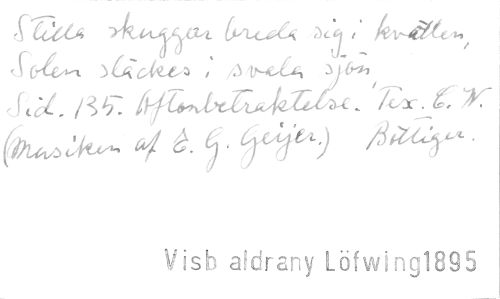 Stilla skuggor breda sig i kvällen,
Solen släckes i svala sjön,
Sid. 135. Aftonbetraktelse. Tex. C. W.
(Musiken af E. G. Geijer.) Böttiger.
Visb aldrany Löfwing1895